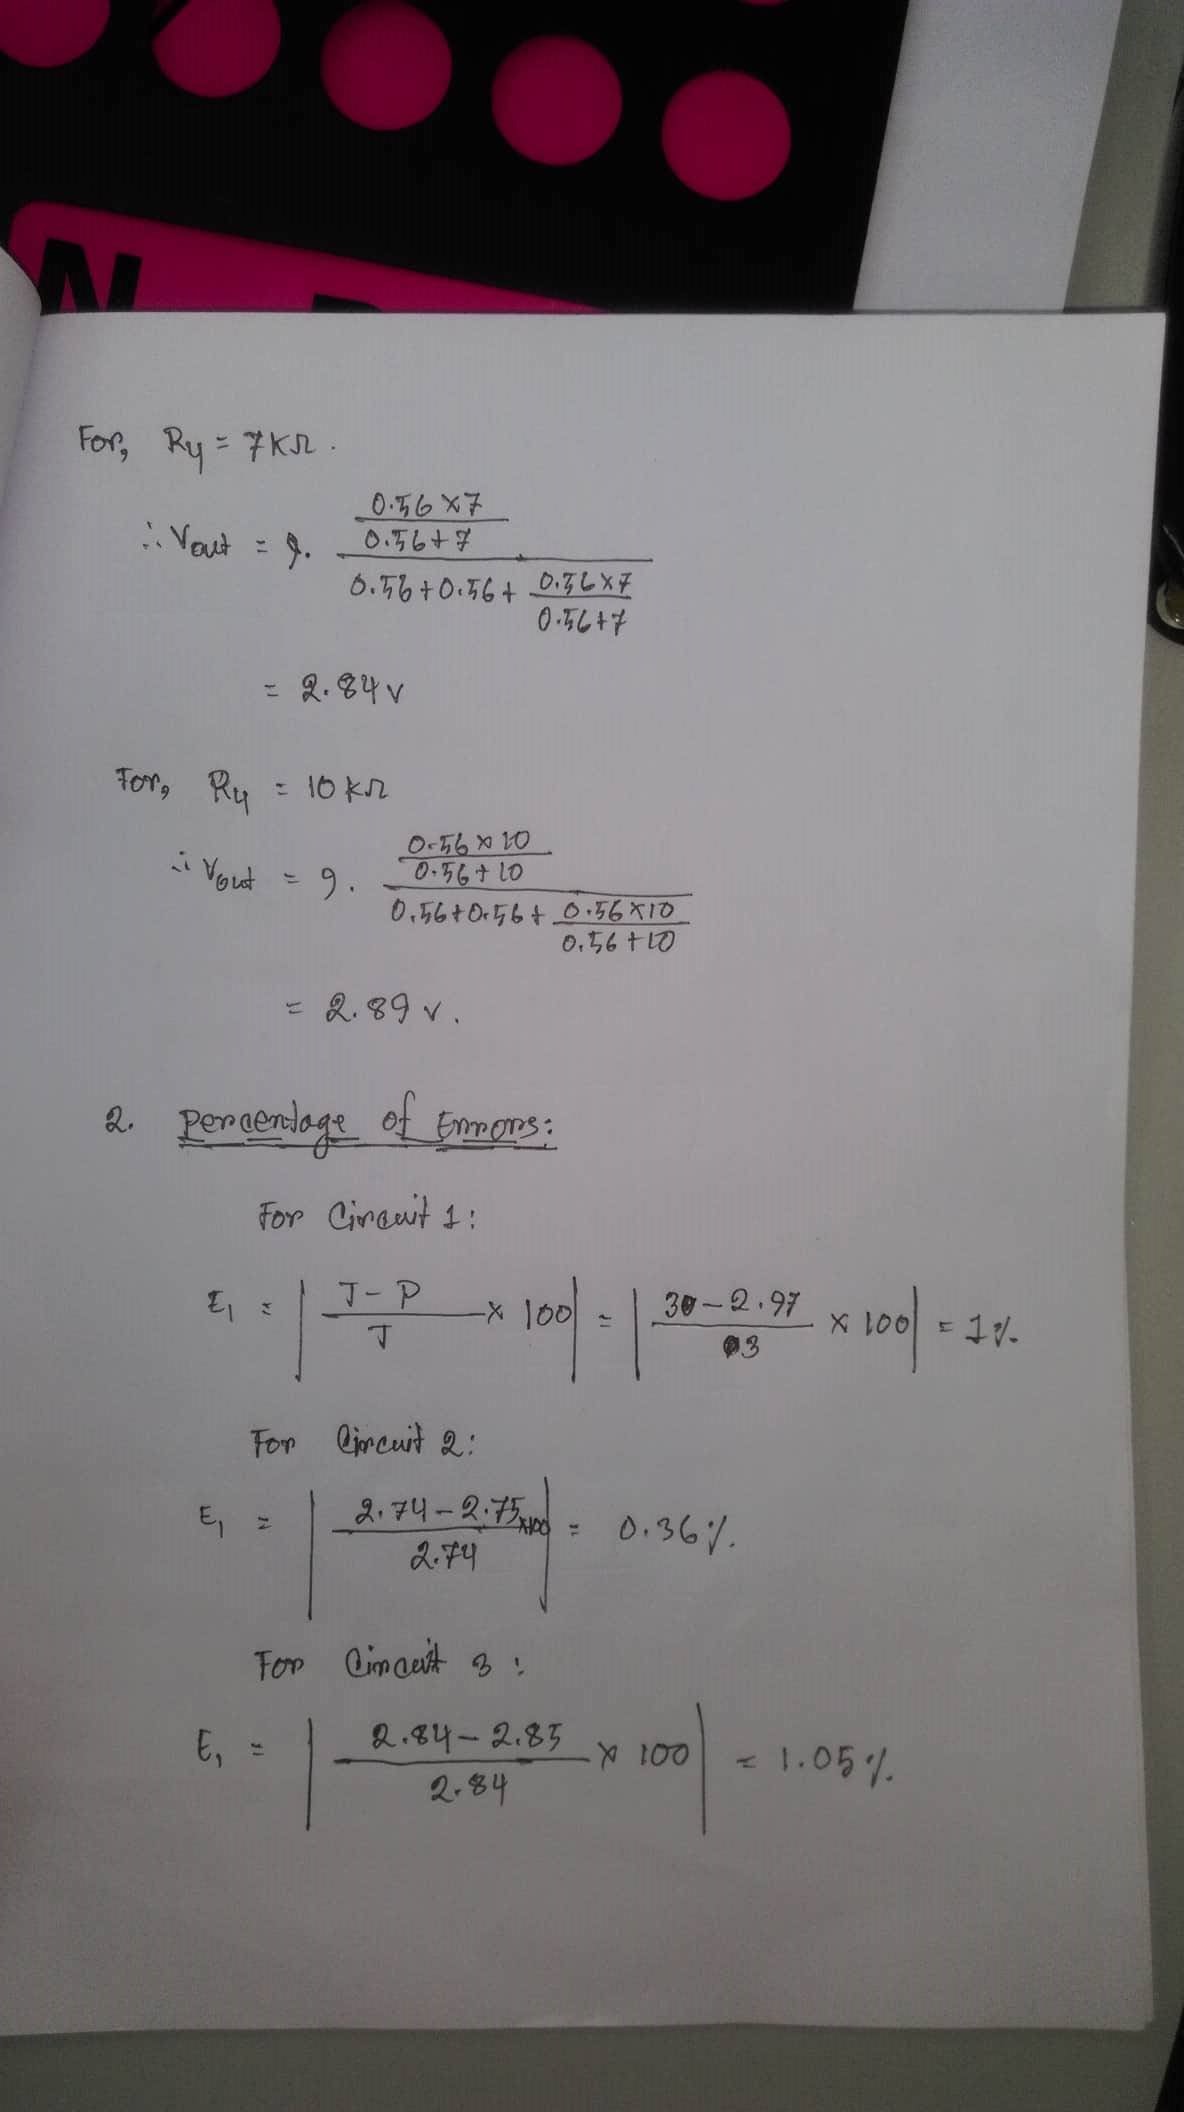 N
For, R4 = 7KΩ.
∴ Vout = 9. ((0.56 × 7)/(0.56 + 7))/(0.56 + 0.56 + (0.56 × 7)/(0.56 + 7))
= 2.84 v
For, R4 = 10 KΩ
∴ Vout = 9. ((0.56 × 10)/(0.56 + 10))/(0.56 + 0.56 + (0.56 × 10)/(0.56 + 10))
= 2.89 v.
2. Percentage of Errors:
For Circuit 1:
E1 = | (T - P)/T × 100 | = | (3 - 2.97)/3 × 100 | = 1%
For Circuit 2:
E1 = | (2.74 - 2.75)/2.74 ×100 | = 0.36%.
For Circuit 3:
E1 = | (2.84 - 2.85)/2.84 × 100 | = 1.05%.